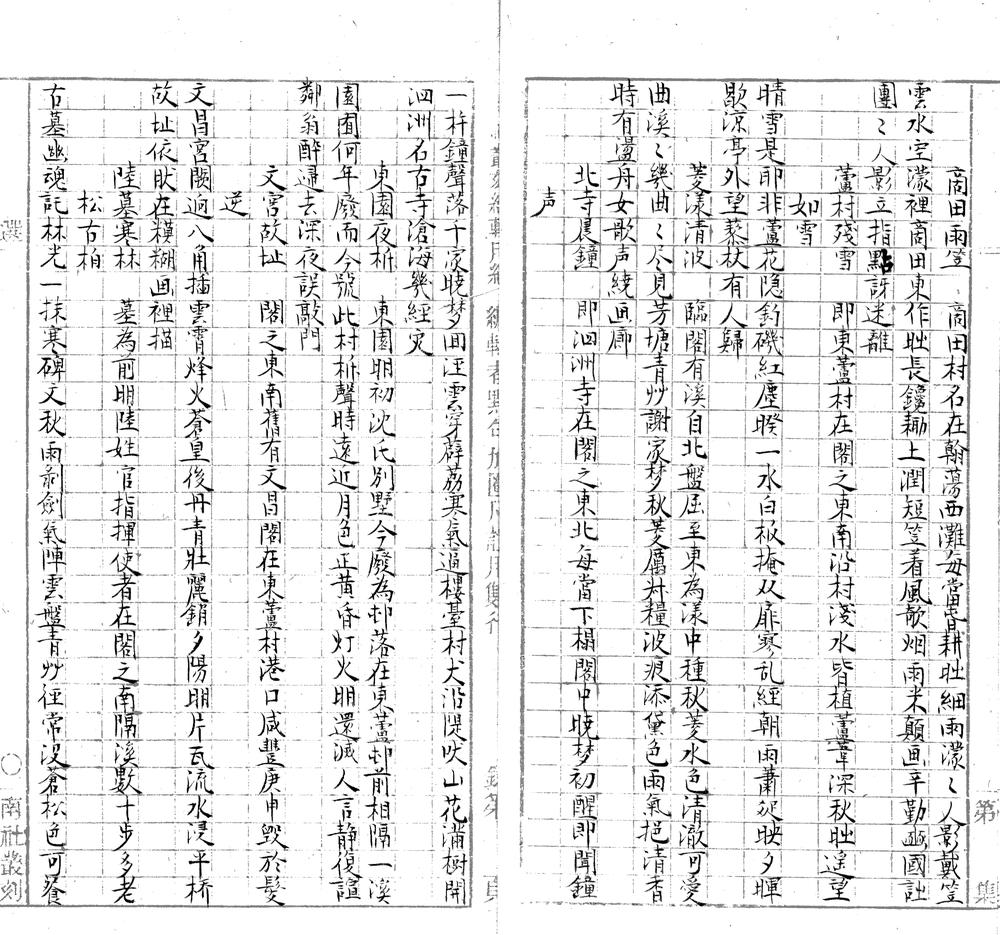 商田雨笠　商田村名在翰蕩西灘每當春耕時細雨濛〻人影戴笠
雲水空濛裡商田東作時長鑱耡土潤短笠着風欹烟雨米顛画辛勤豳國詩
團〻人影立指點訝迷離
蘆村殘雪　即東蘆村在閣之東南沿村淺水皆植蘆葦深秋時遥望
如雪
晴雪是耶非蘆花隐釣磯紅塵暌一水白板掩双扉寒乱經朝雨蕭疎映夕暉
歇凉亭外望藜杖有人歸
菱漾清波　臨閣有溪自北盤屈至東為漾中種秋菱水色清澈可愛
曲溪〻幾曲〻尽見芳塘青艸謝家梦秋菱属舛糧波痕添黛色雨氣挹清香
時有盪舟女歌声繞画廊
北寺晨鐘　即泗洲寺在閣之東北每當下榻閣中曉梦初醒即聞鐘
声
一杵鐘聲落千家曉梦囬溼雲穿薜荔寒氣逼樓臺村犬沿隄吠山花滿樹開
泗洲名古寺滄海幾經灾
東園夜柝　東園明初沈氏別墅今廢為邨落在東蘆邨前相隔一溪
園囿何年廢而今號此村柝聲時遠近月色正黄昏灯火明還滅人言静復諠
鄰翁醉歸去深夜誤敲門
文宮故址　閣之東南舊有文昌閣在東蘆村港口咸豐庚申毁於髮
逆
文昌宮闕迥八角插雲霄烽火蒼皇後丹青壯麗銷夕陽明片瓦流水浸平桥
故址依肰在糢糊画裡描
陸墓寒林　墓為前明陸姓官指揮使者在閣之南隔溪數十步多老
松古柏
古墓幽魂託林光一抹寒碑文秋雨剥劍氣陣雲盤青艸徑常没蒼松色可餐
選
○
南社叢刻
第
集